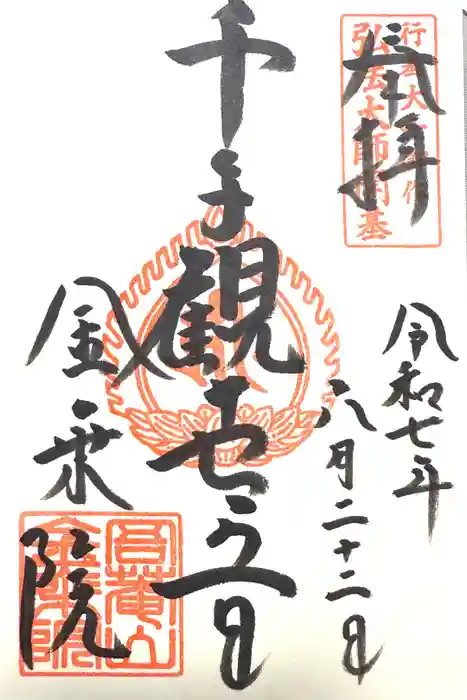 奉拝
行基大士御作
弘法大師開基
令和七年
八月二十二日
千手観世音
金乗院